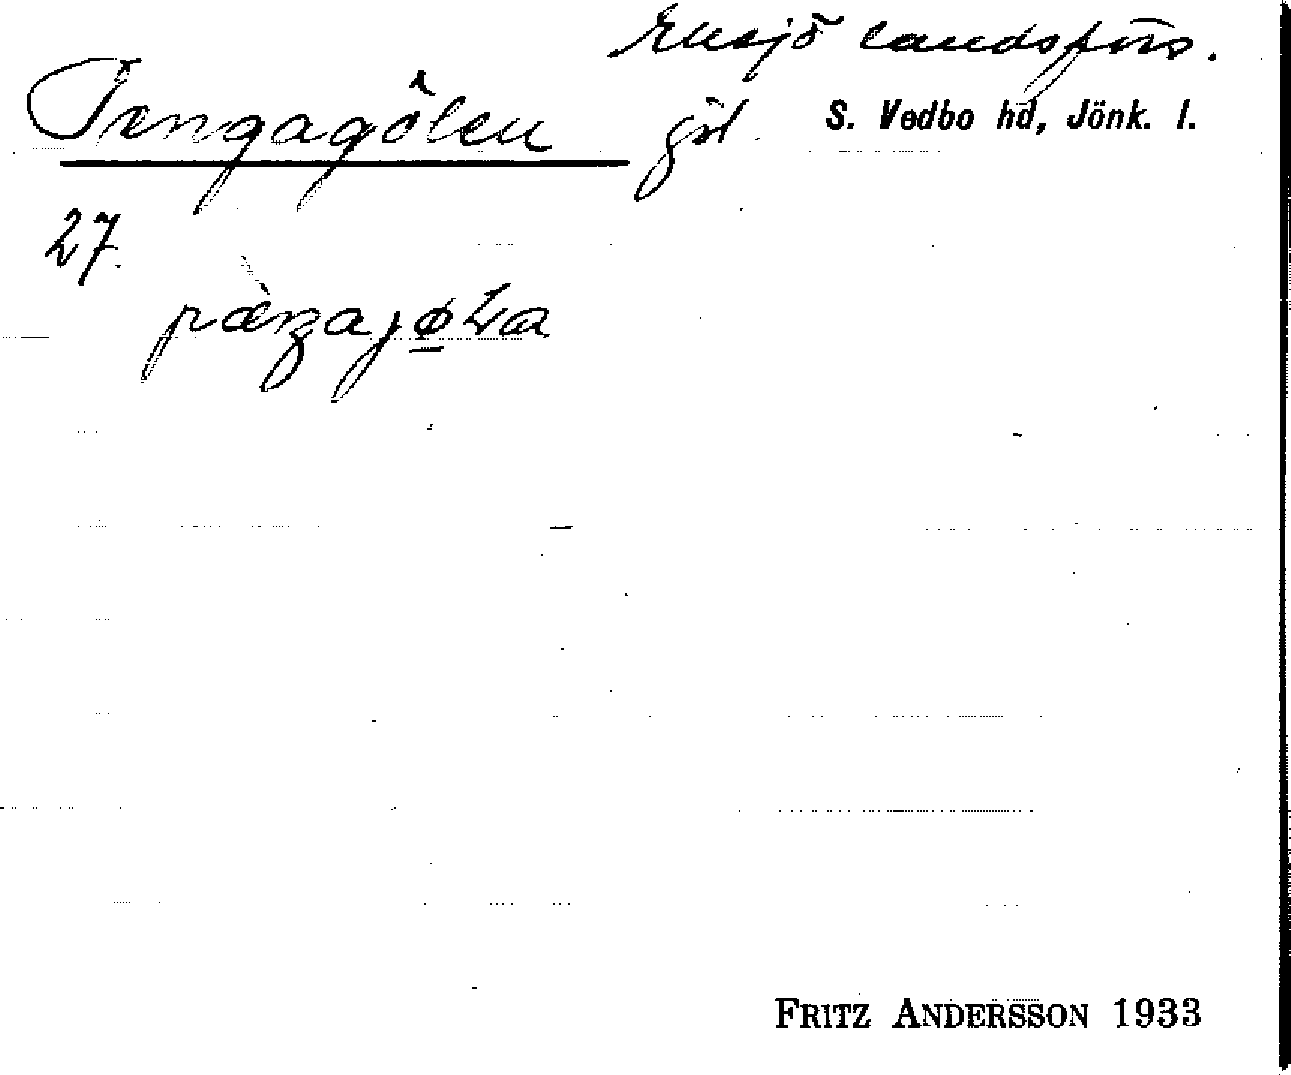 Eksjö landsförs.
Pengagölen göl S. Vedbo hd, Jönk. l.
27.
pæ̀ŋajøLa
FRITZ ANDERSSON 1933